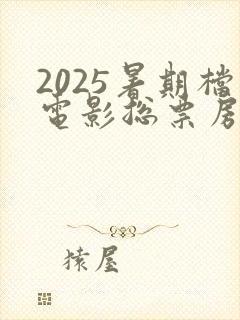 2025暑期檔
電影總票房
猿屋